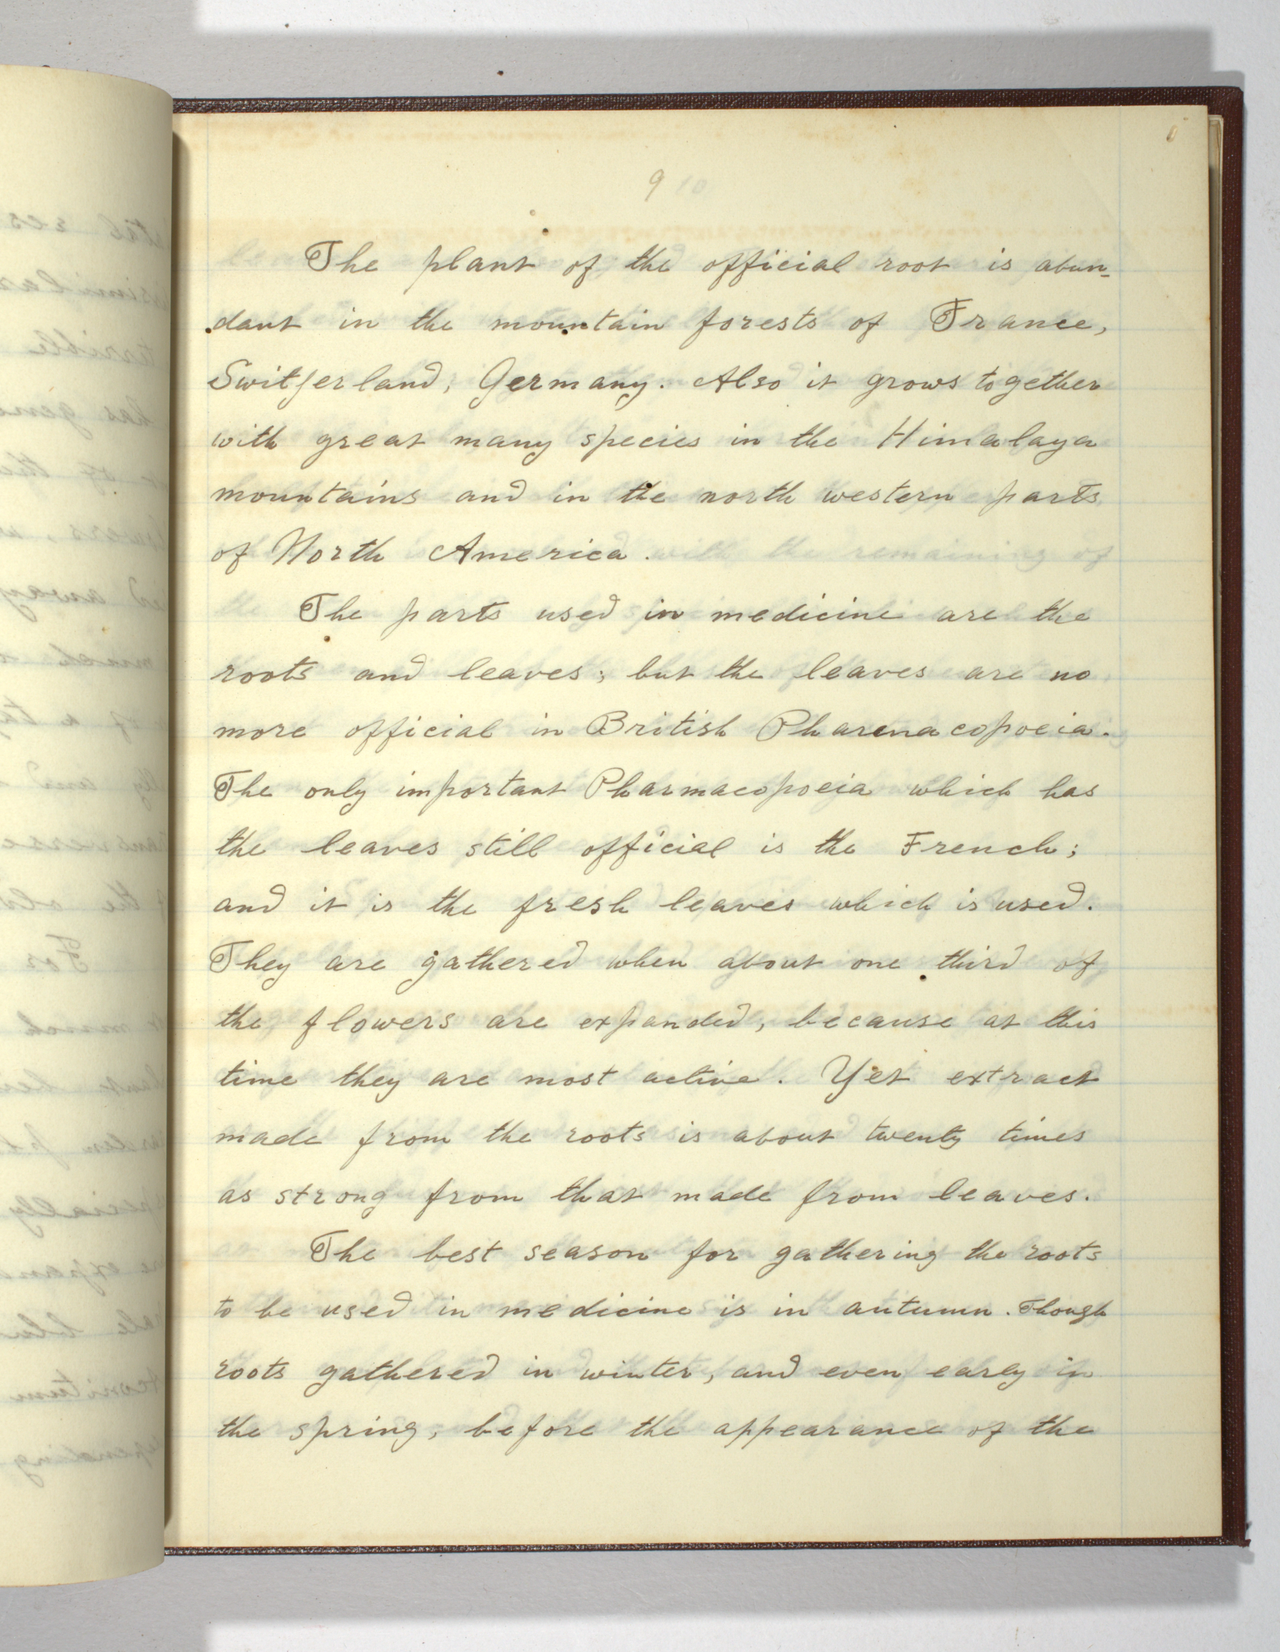 9
The plant of the official root is abun-
dant in the mountain forests of France,
Switzerland, Germany. Also it grows together
with great many species in the Himalaya
mountains and in the north western parts
of North America.
The parts used in medicine are the
roots and leaves; but the leaves are no
more official in British Pharenacopoeia.
The only important Pharmacopoeia which has
the leaves still official is the French;
and it is the fresh leaves which is used.
They are gathered when about one third of
the flowers are expanded, because at this
time they are most active. Yet extract
made from the roots is about twenty times
as strong from that made from leaves.
The best season for gathering the roots
to be used in medicine is in autumn. Though
roots gathered in winter, and even early in
the spring, before the appearance of the